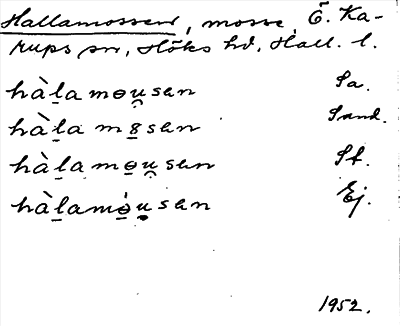 Hallamossen, mosse, Ö. Ka-
rups sn, Höks hd, Hall. l.
hàl̠amɵu̯sen Sa.
hàl̠a m8̠sen Sand.
hàl̠amɵ̠u̯sen St.
hàl̠amɵ̠̀u̯sen Ej.
1952.